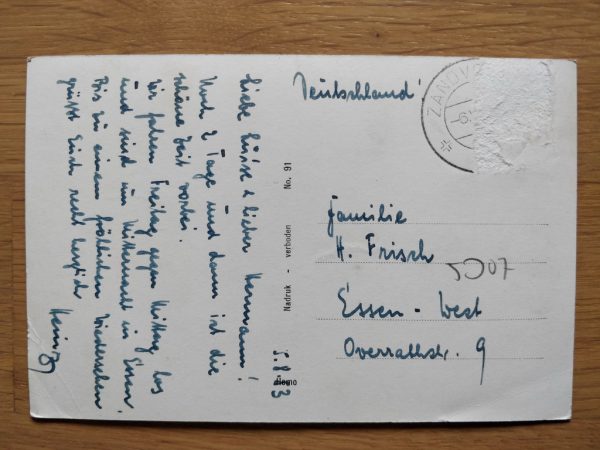 Liebe Luise & lieber Hermann!
Noch 2 Tage und dann ist die
schöne Zeit vorbei.
Wir fahren Freitag gegen Mittag los
und sind um Mitternacht in Essen.
Bis zu einem fröhlichen Wiedersehen
grüßt Euch recht herzlich
Heinz
5.8.53
Nadruk - verboden No. 91
Deutschland!
ZANDV
Familie
H. Frisch
5007
Essen - West
Overrathstr. 9